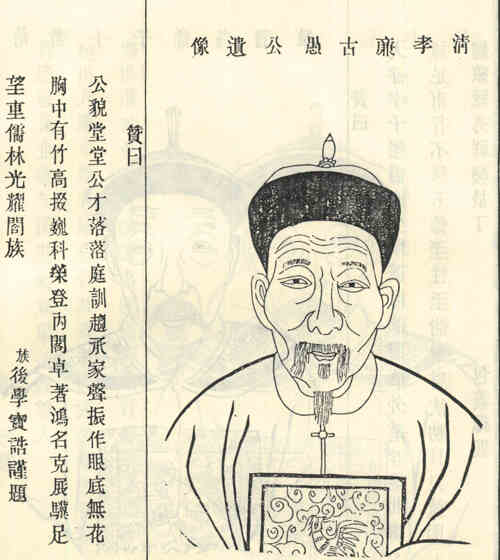 清孝廉古愚公遺像
贊曰
公貌堂堂公才落落庭訓趨承家聲振作眼底無花
胸中有竹高掇巍科榮登內閣卓著鴻名克展驥足
望重儒林光耀閤族
族後學寶誥謹題